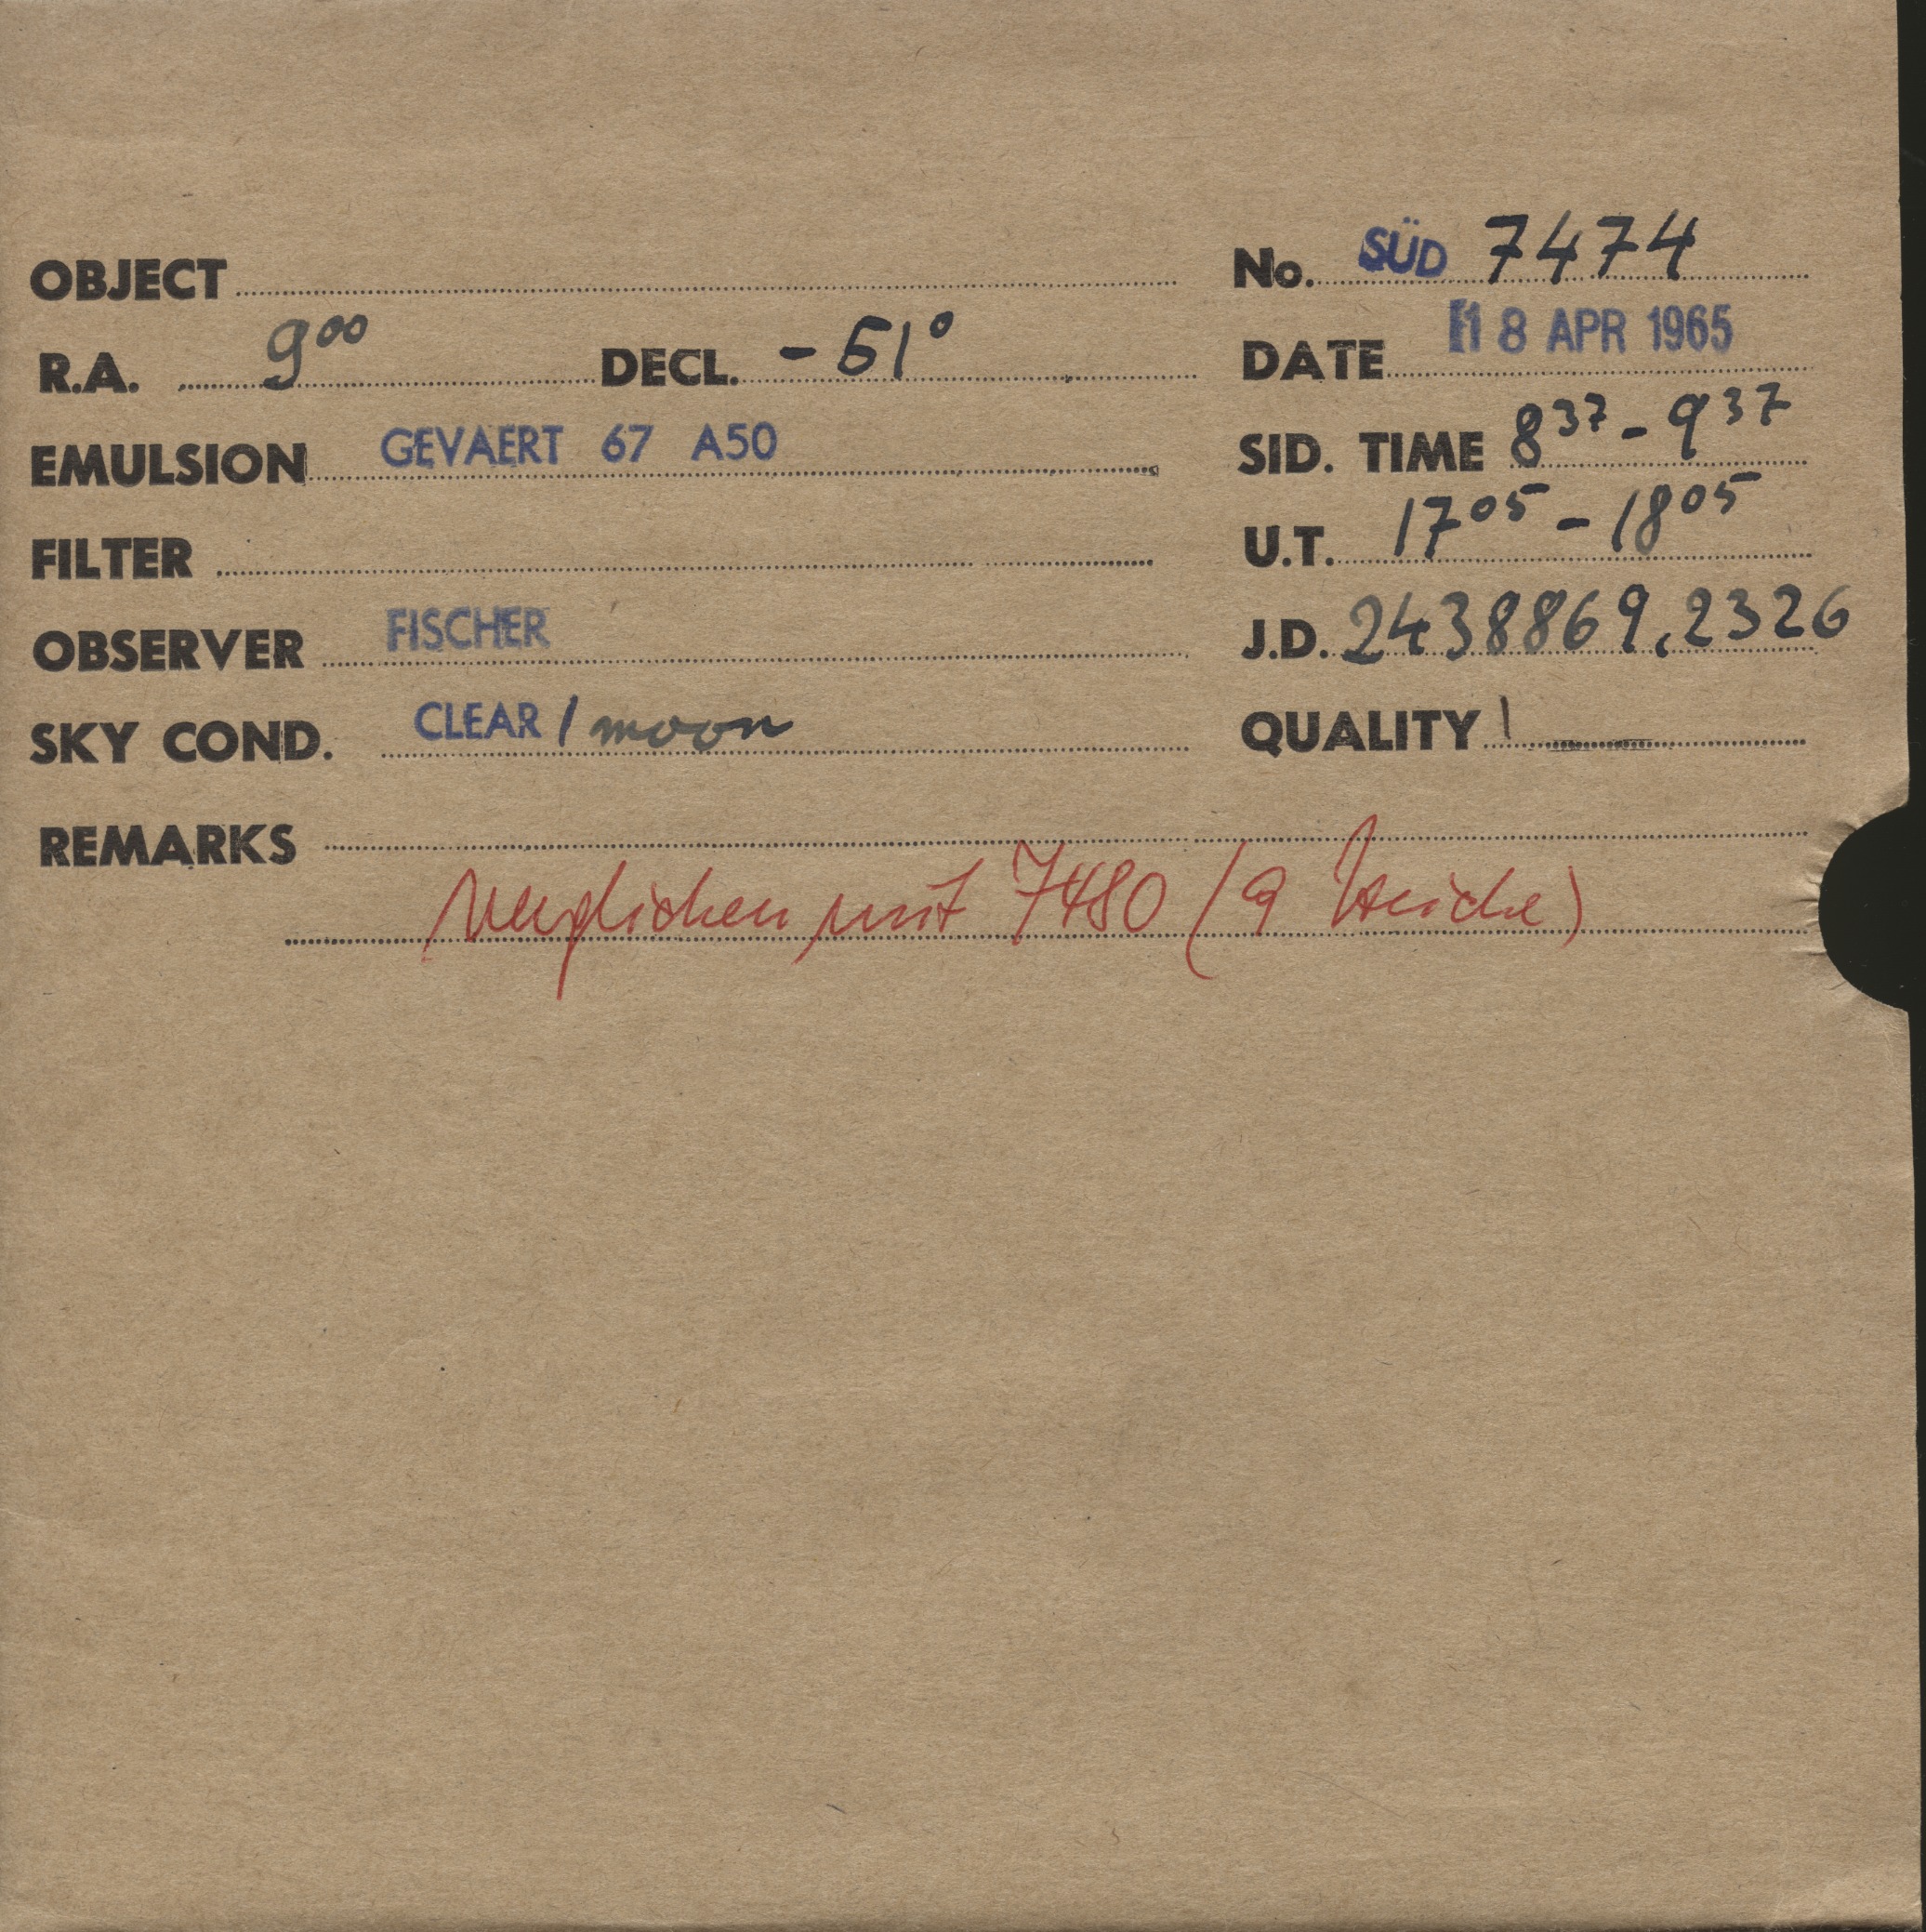 OBJECT
No. SÜD 7474
R.A. 9⁰⁰ DECL. -51°
DATE 18 APR 1965
EMULSION GEVAERT 67 A50
SID. TIME 8³⁷ - 9³⁷
FILTER
U.T. 17⁰⁵ - 18⁰⁵
OBSERVER FISCHER
J.D. 2438869.2326
SKY COND. CLEAR / moon
QUALITY 1
REMARKS
verglichen mit 7480 (9